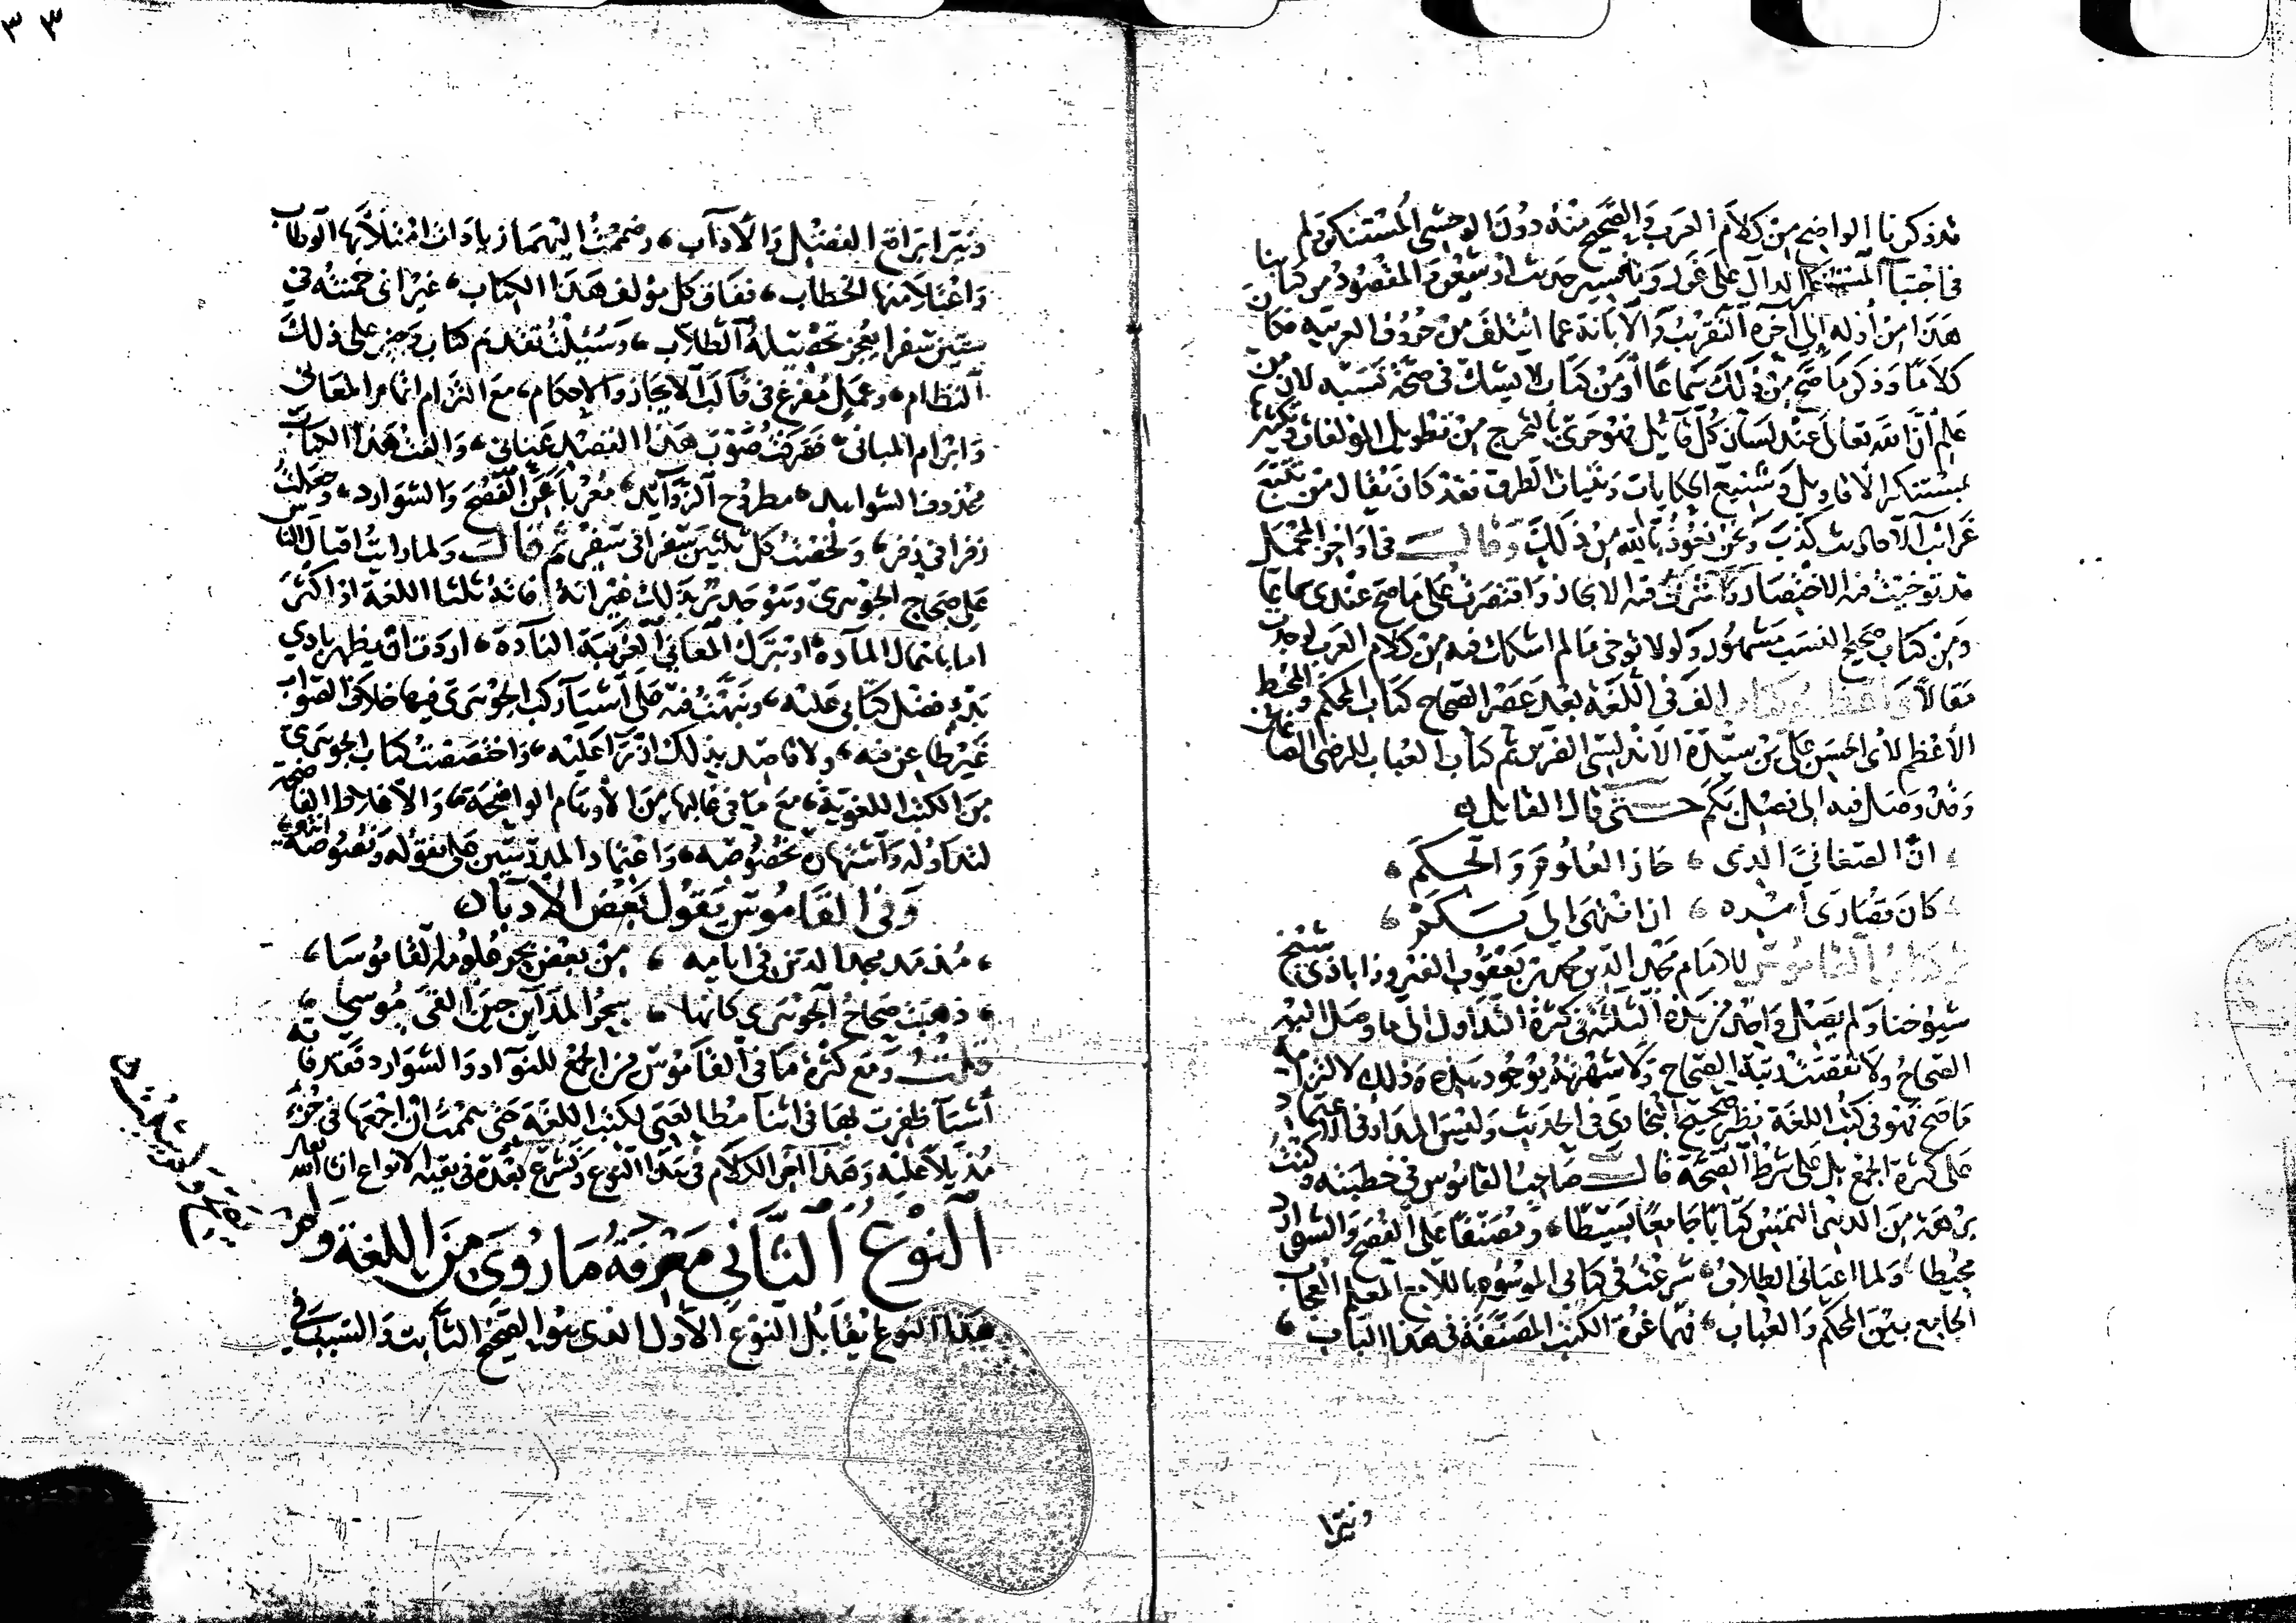 قد ذكرنا الواضح من كلام العرب والصحيح منه دون الوحشي المستنكر ولم
نال في اجتباء المستنكر الدال على غرر وتفسير حديث او شعر والمقصود من كتابنا
هذا من أوله الى آخره التقريب والابانة عما ائتلف من حروف العربية فكان
كلاما وذكر ما صح من ذلك سماعا او من كتاب لا يشك في صحة نسبه لان من
علم ان الله تعالى عند لسان كل قايل فهو حري بالتحرج من تطويل المولفات وتكثيرها
بمستنكر الاقاويل وشنيع الحكايات وبنيات الطرق فقد كان يقال من تتبع
غرائب الاحاديث كذب ونحن نعوذ بالله من ذلك وقال في اواخر المجمل
قد توخيت فيه الاختصار واثرت فيه الايجاز واقتصرت على ما صح عندي سماعا
ومن كتاب صحيح النسب مشهور ولولا توخي مالم اشكك فيه من كلام العرب لوجدت
مقالا واعظم كتاب الف في اللغة بعد عصر الصحاح كتاب المحكم والمحيط
الأعظم لابي الحسن علي بن سيدة الاندلسي الضرير ثم كتاب العباب للرضي الصاغاني
وقد وصل فيه الى فصل بكم حتى قال القايل
ان الصغاني الذي ، حاز العلوم والحكم ،
كان قصارى امره ، ان انتهى الى بكم ،
ثم كتاب القاموس للامام مجد الدين محمد بن يعقوب الفيروزاباذي شيخ
شيوخنا ولم يصل واحد من هذه الثلثة في كثرة التداول الى ما وصل اليه
الصحاح ولا نقصت رتبة الصحاح ولا شهرته بوجود هذه وذلك لالتزامه
ما صح فهو في كتب اللغة نظير صحيح البخاري في الحديث وليس المدار في الاعتماد
على كثرة الجمع بل على شرط الصحة قال صاحب القاموس في خطبته وكنت
برهة من الدهر التمس كتابا جامعا بسيطا ، ومصنفا على الفصح والشوارد
محيطا ، ولما اعياني الطلاب ، شرعت في كتابي الموسوم باللامع المعلم العجاب
الجامع بين المحكم والعباب ، فهما غرة الكتب المصنفة في هذا الباب ،
ونيرا
٣٣
ونيرا براقع الفضل والآداب ، وضممت اليهما زيادات امتلأ بها الوطاب
واعتلا منها الخطاب ، ففاق كل مولف هذا الكتاب ، غير اني خمنته في
ستين سفرا يعجز تحصيله الطلاب ، وسئلت تقديم كتاب وجيز على ذلك
النظام ، وعمل مفرغ في قالب الايجاز والاحكام ، مع التزام اتمام المعاني
وابرام المباني ، فصرفت صوب هذا القصد عناني ، والفت هذا الكتاب
محذوف الشواهد ، مطروح الزوايد ، معربا عن الفصح والشوارد ، وجعلت
زفرا في زفر ، ولخصت كل ثلثين سفرا في سفر ثم قال ولما رايت اقبال الناس
على صحاح الجوهري وهو جدير بذلك غير انه فاته ثلثا اللغة او اكثر
اما باهمال المادة او بترك المعاني الغريبة النادة ، اردت ان يظهر بادي
بدء فضل كتابي عليه ، ونبهت فيه على اشيا ركب الجوهري فيها خلاف الصواب
غير طاعن فيه ، ولا قاصد بذلك ازراء عليه ، واختصصت كتاب الجوهري
من الكتب اللغوية ، مع ما في غالبها من الأوهام الواضحة ، والاغلاط الفاضحة
لتداوله واشتهاره بخصوصه ، واعتماد المدرسين على نقوله ونصوصه ، انتهى
وفي القاموس يقول بعض الادباء
، مذ مد مجد الدين في ايامه ، من بعض بحر علومه القاموسا ،
، ذهبت صحاح الجوهري كانها ، سحر المداين حين القى موسى ،
قلت ومع كثرة ما في القاموس من الجمع للنوادر والشوارد فقد فاته
أشيا ظفرت بها في اثنا مطالعتي لكتب اللغة حتى هممت ان اجمعها في جزء
مذيلا عليه وهذا آخر الكلام في هذا النوع ونشرع بعده في بقية الانواع ان شاء الله تعالى
النوع الثاني معرفة ما روي من اللغة ولم
يصح ولم يثبت
هذا النوع يقابل النوع الأول الذي هو الصحيح الثابت والسبب في